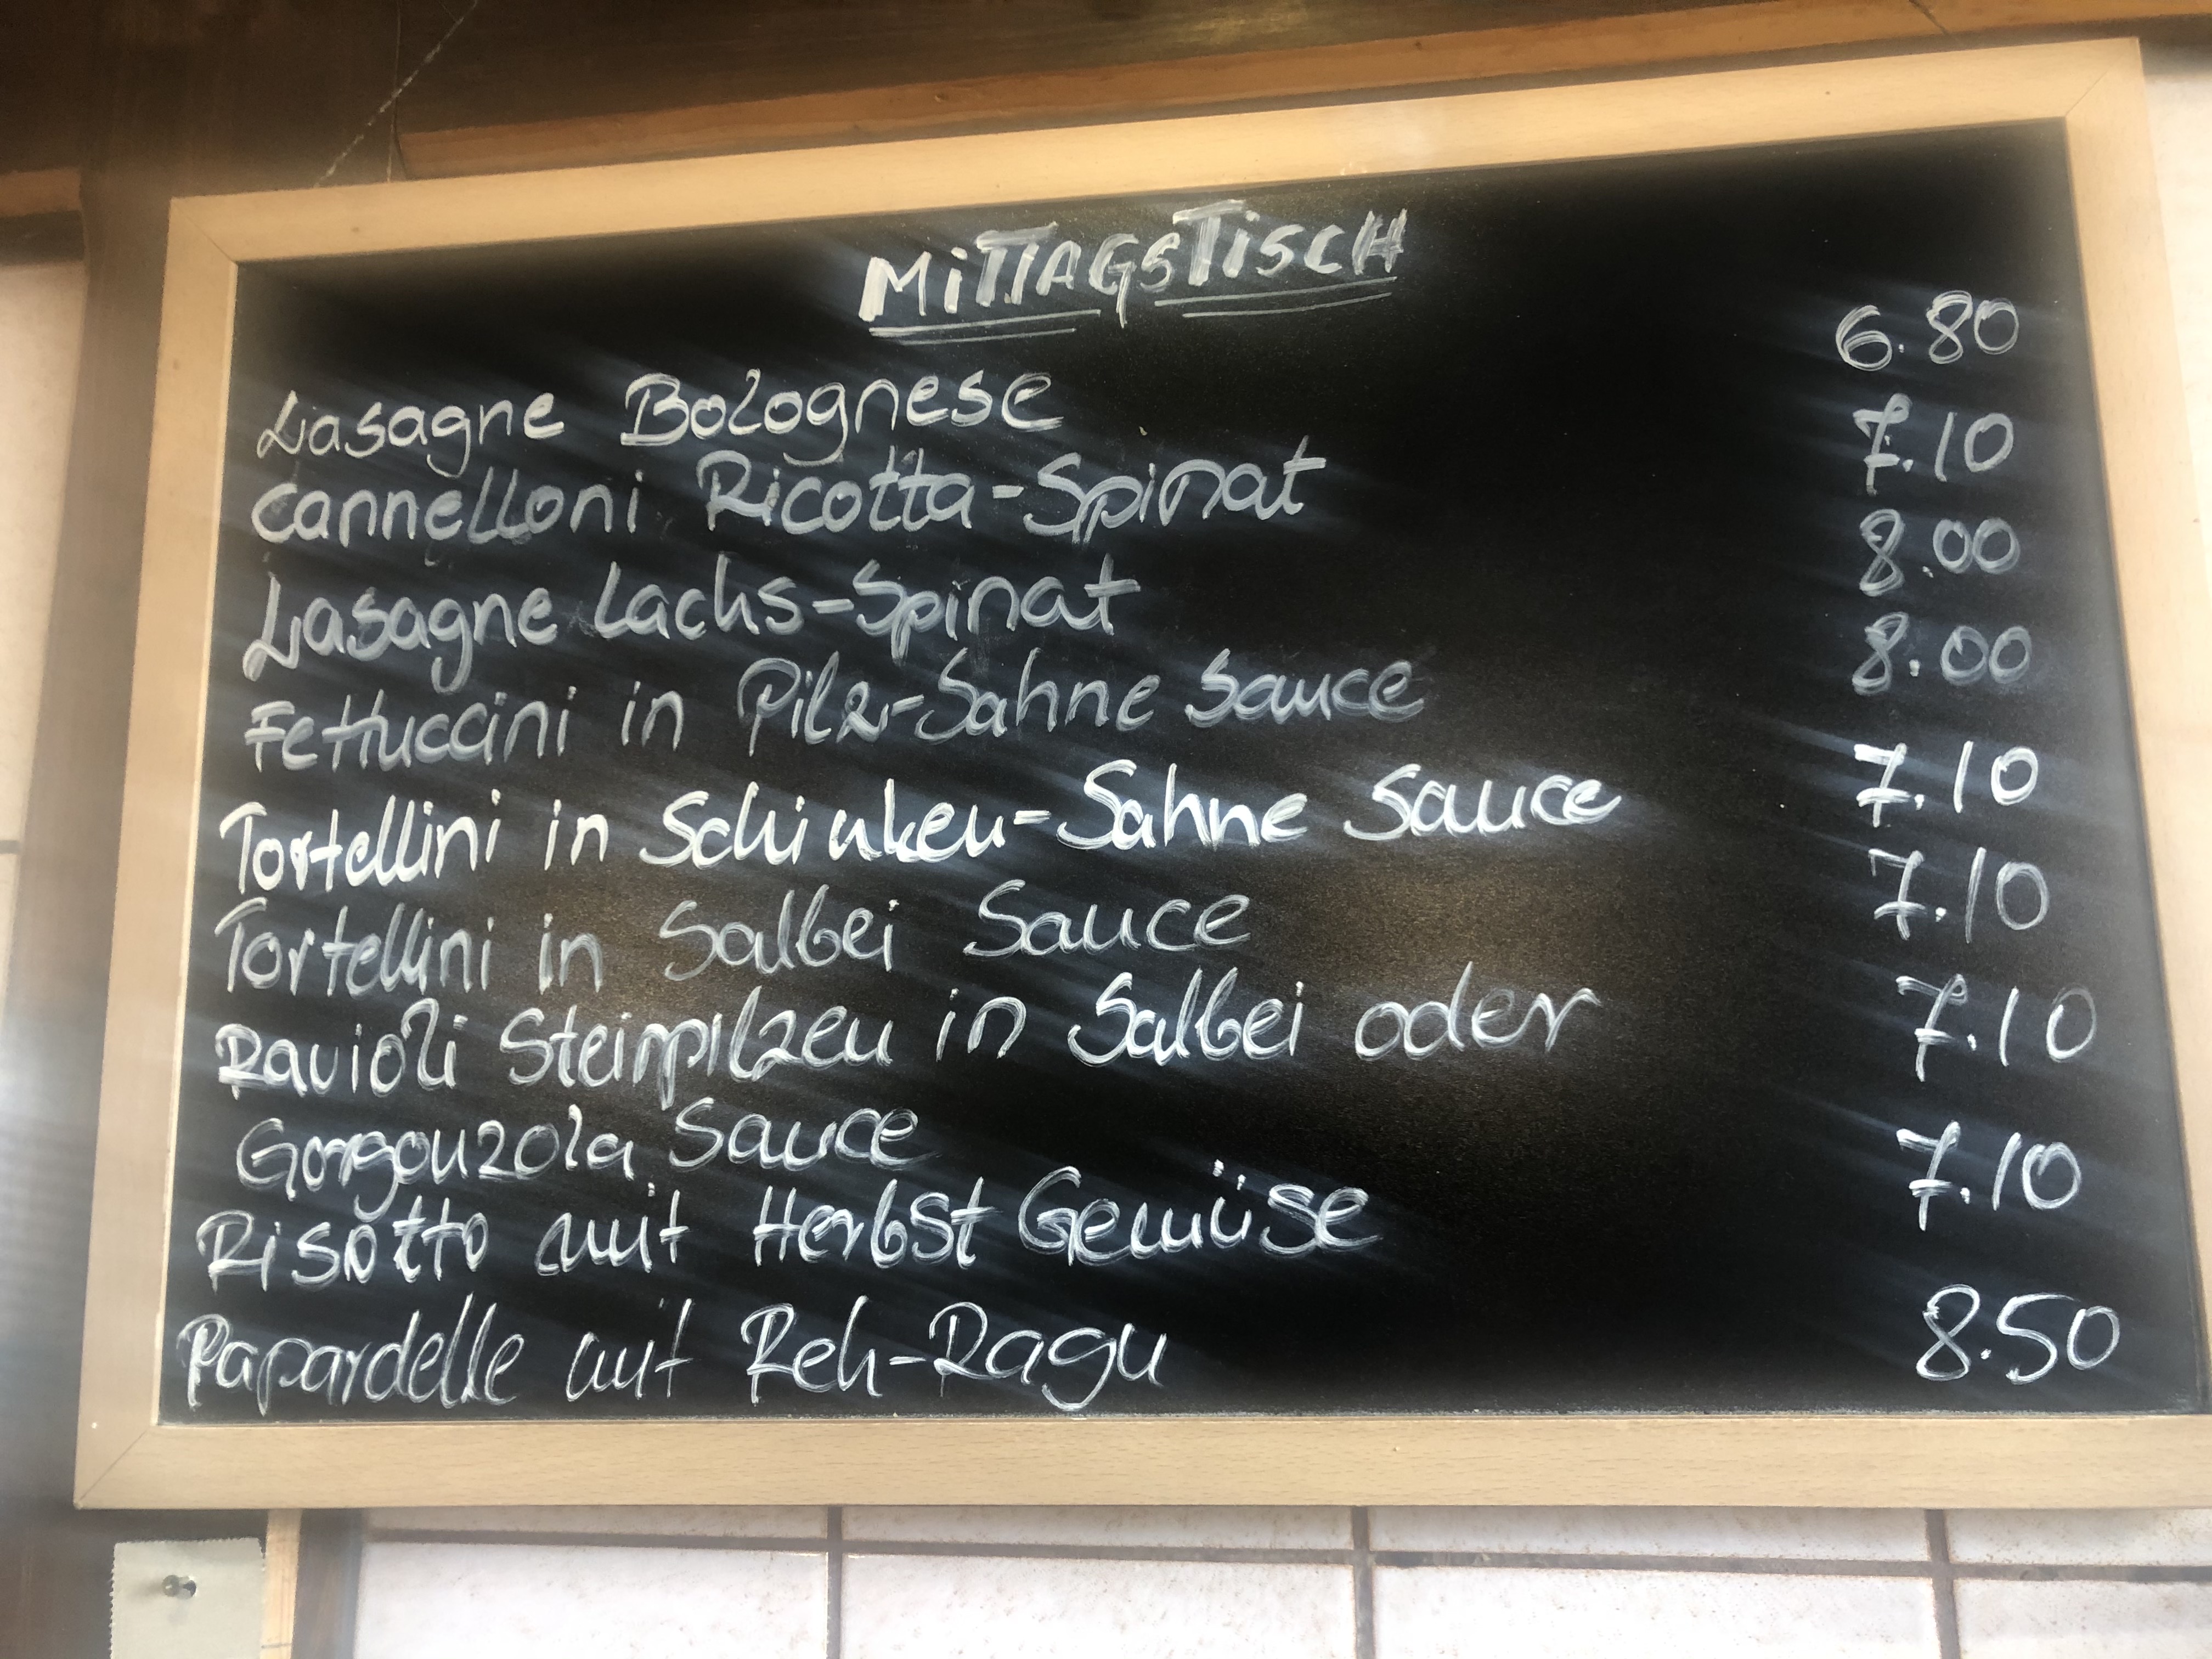 MiTTAGSTiSCH
Lasagne Bolognese 6.80
Cannelloni Ricotta-Spinat 7.10
Lasagne Lachs-Spinat 8.00
Fettuccini in Pilz-Sahne Sauce 8.00
Tortellini in Schinken-Sahne Sauce 7.10
Tortellini in Salbei Sauce 7.10
Ravioli Steinpilzen in Salbei oder 7.10
Gorgonzola Sauce
Risotto mit Herbst Gemüse 7.10
Papardelle mit Reh-Ragu 8.50